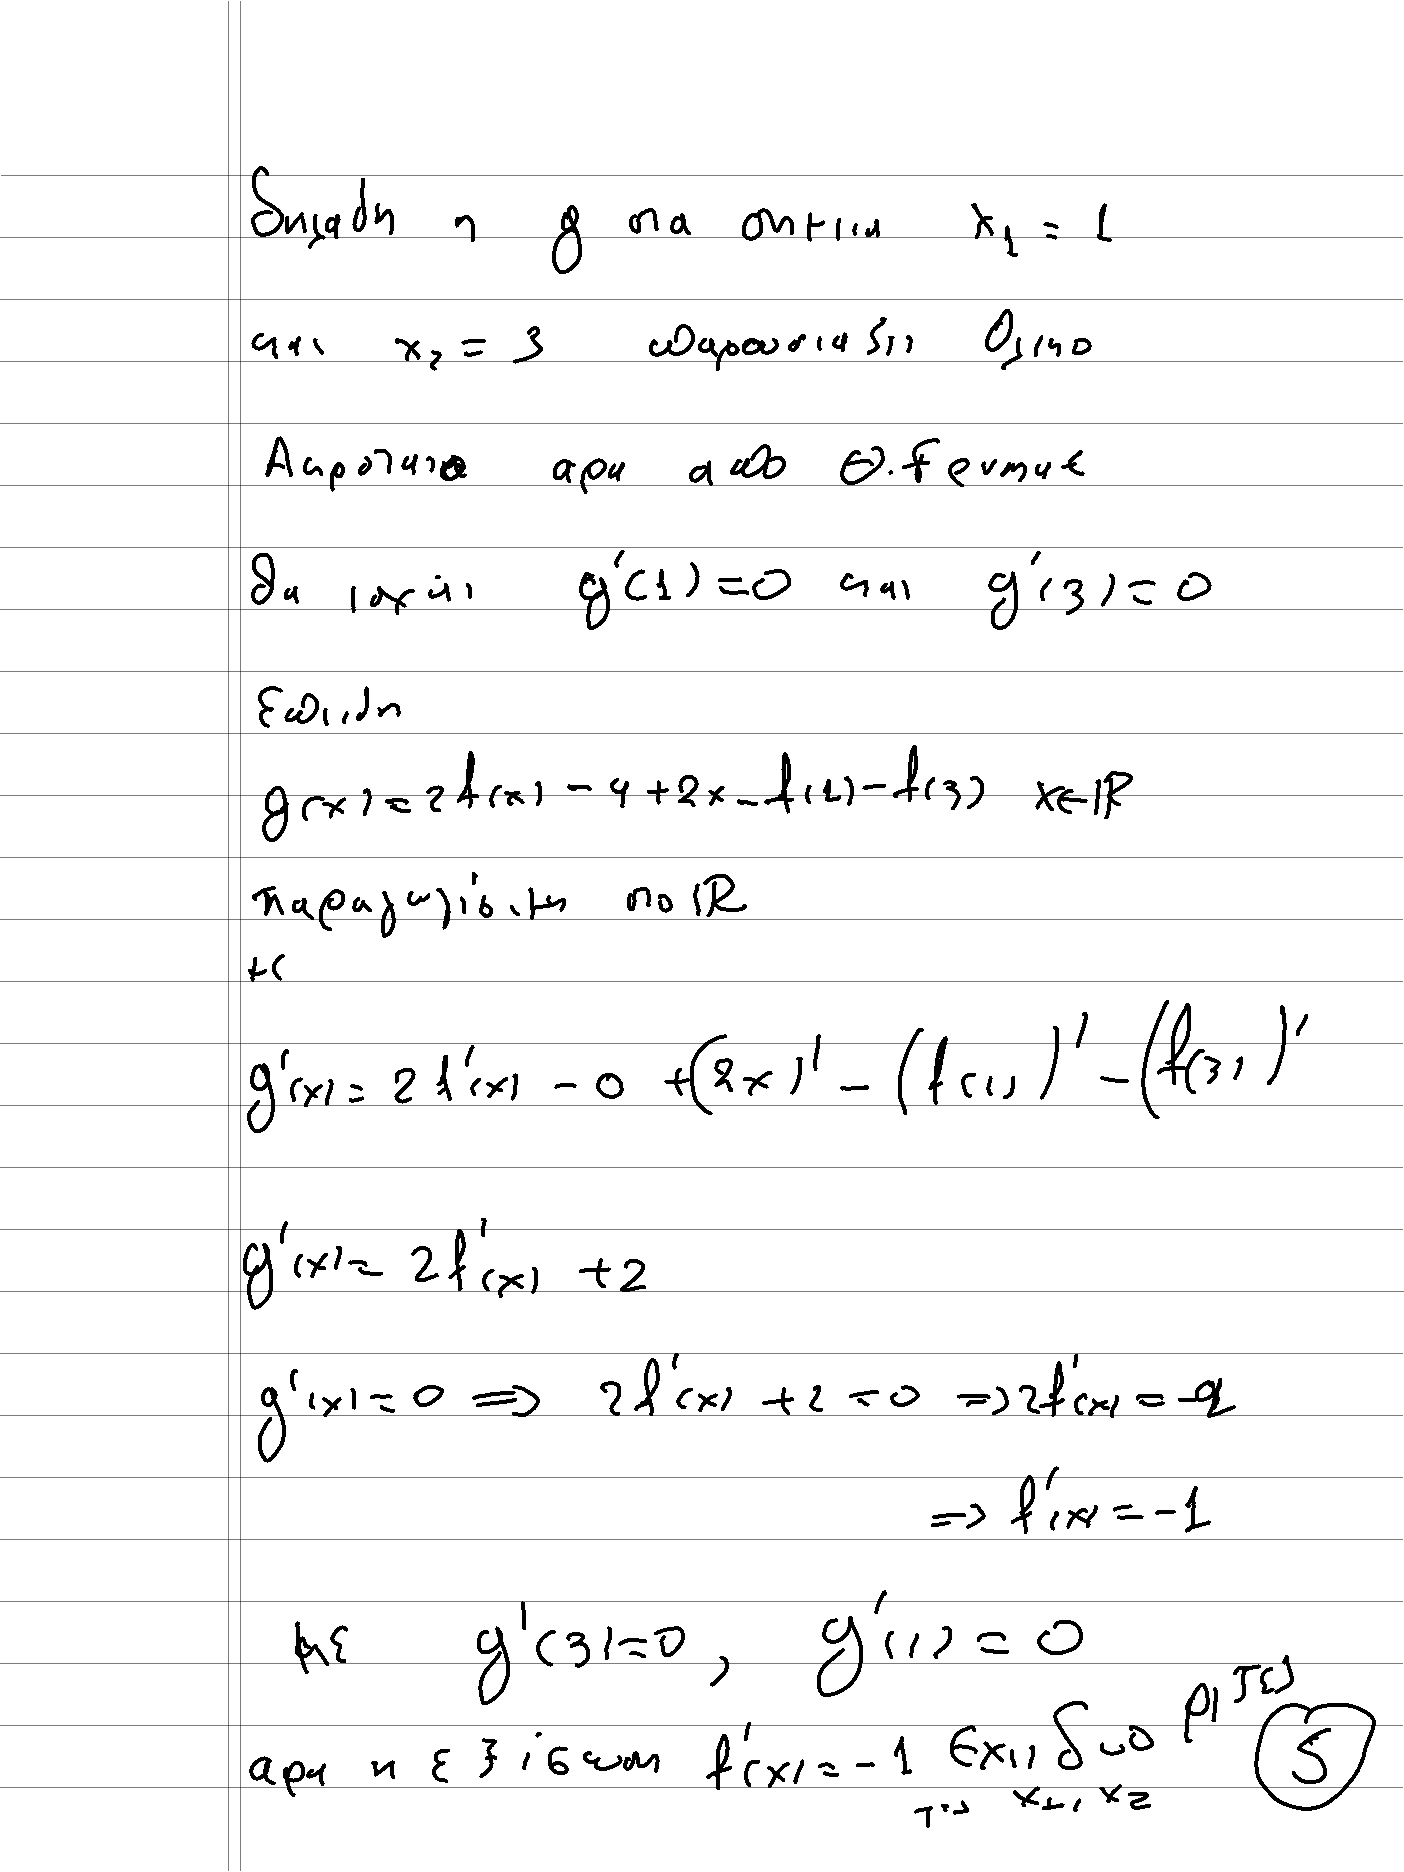 δηλαδη η g στα σημεια x₁ = 1
και x₂ = 3 παρουσιαζει ολικο
Ακροτατο αρα απο Θ. Fermat
θα ισχύει g'(1) = 0 και g'(3) = 0
Επειδη
g(x) = 2f(x) - 4 + 2x - f(1) - f(3) x∈ℝ
παραγωγίσιμη στο ℝ
με
g'(x) = 2f'(x) - 0 + (2x)' - (f(1))' - (f(3))'
g'(x) = 2f'(x) + 2
g'(x) = 0 ⇒ 2f'(x) + 2 = 0 ⇒ 2f'(x) = -2
⇒ f'(x) = -1
με g'(3) = 0, g'(1) = 0
αρα η εξίσωση f'(x) = -1 εχει δυο ριζες
τις x₁, x₂
5